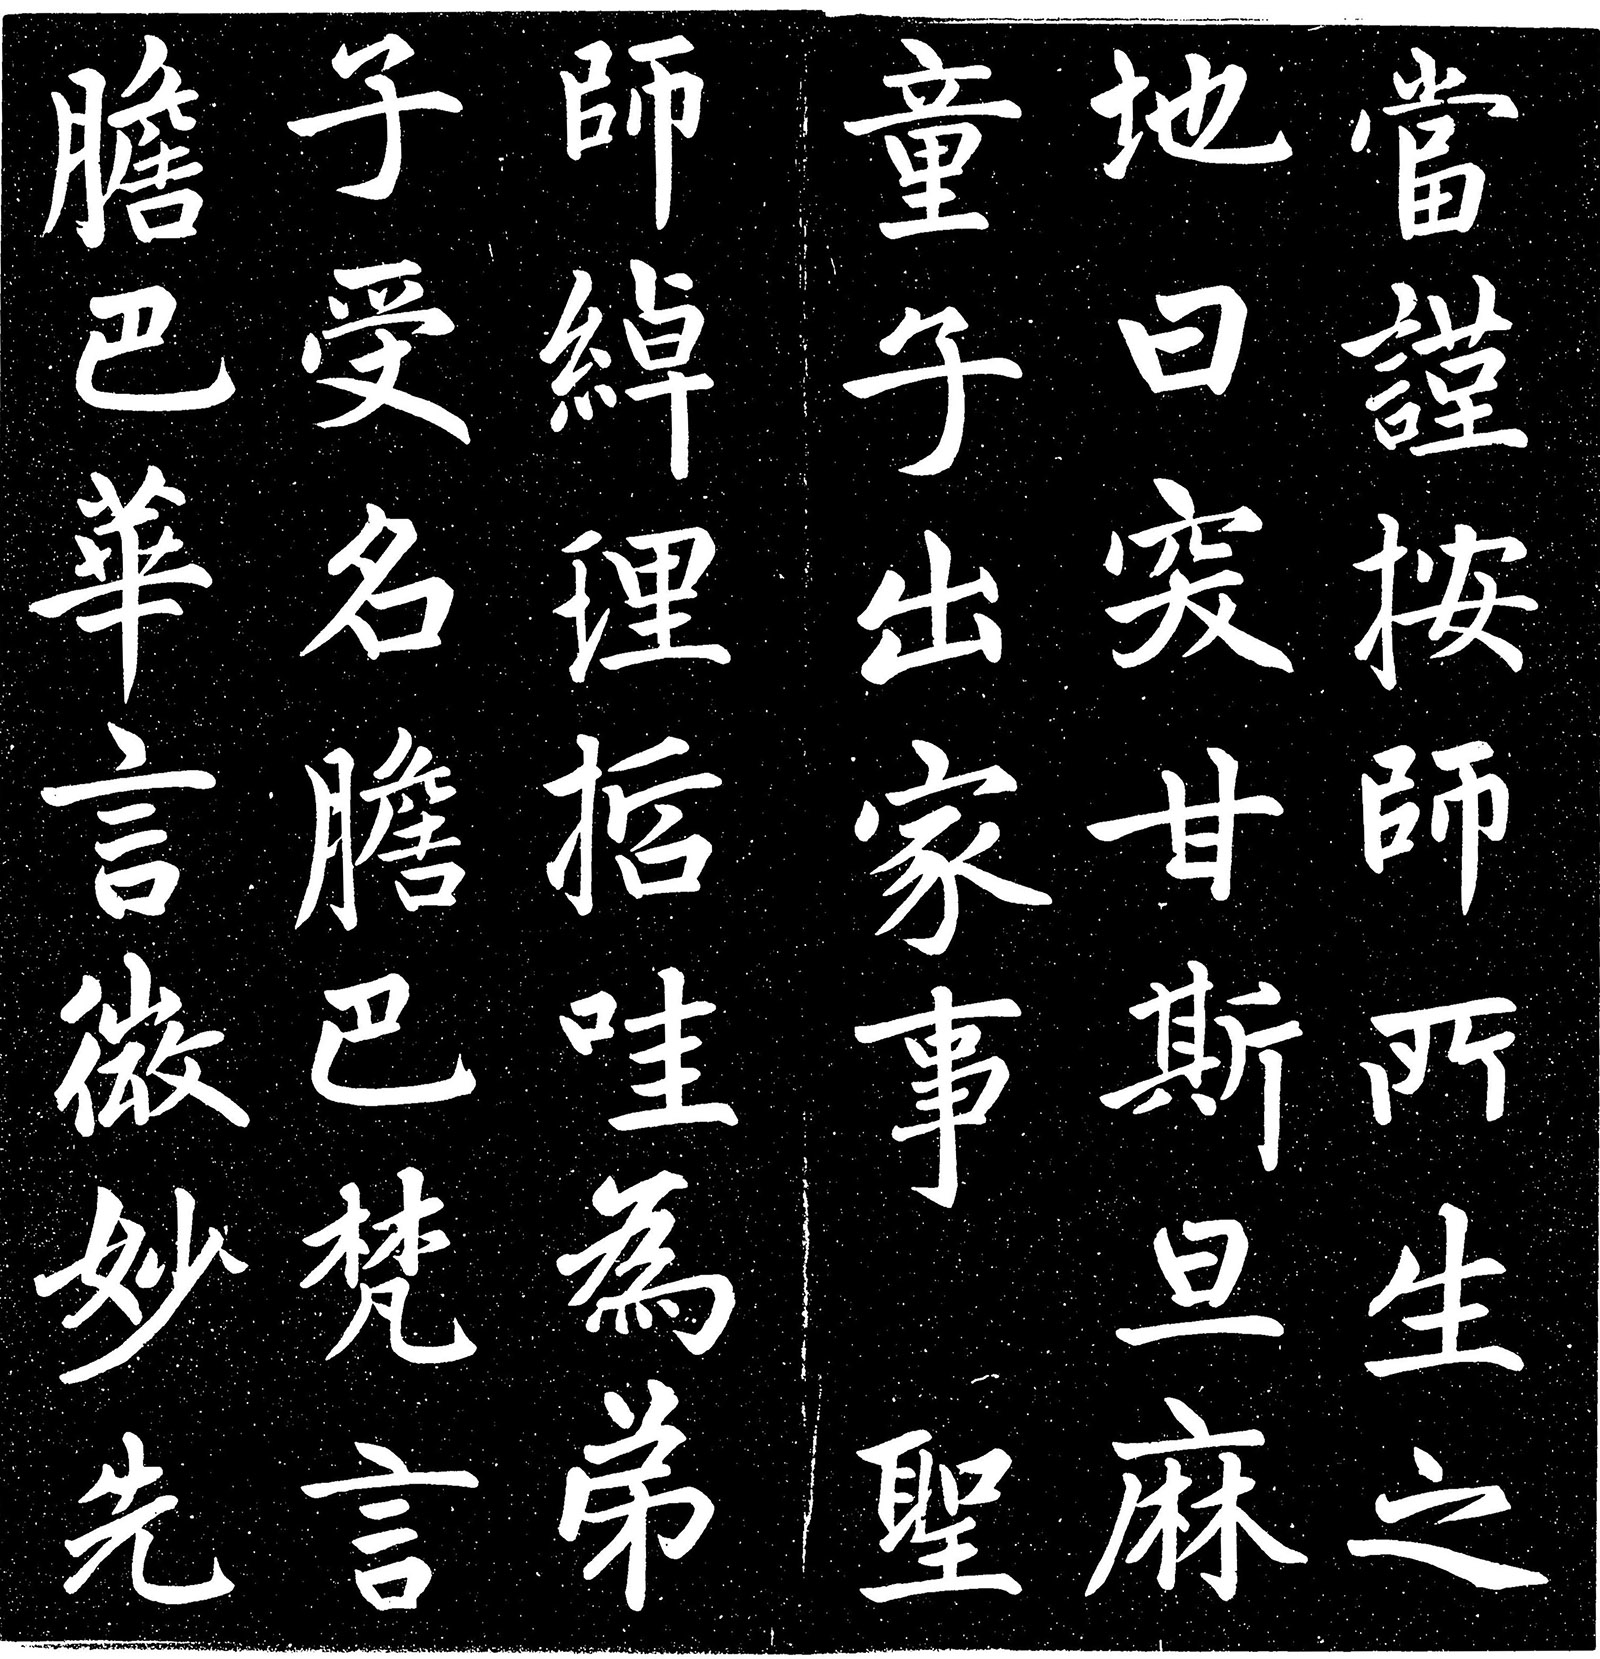 當謹按師所生之
地曰突甘斯旦麻
童子出家事 聖
師綽理哲哇為弟
子受名膽巴梵言
膽巴華言微妙先